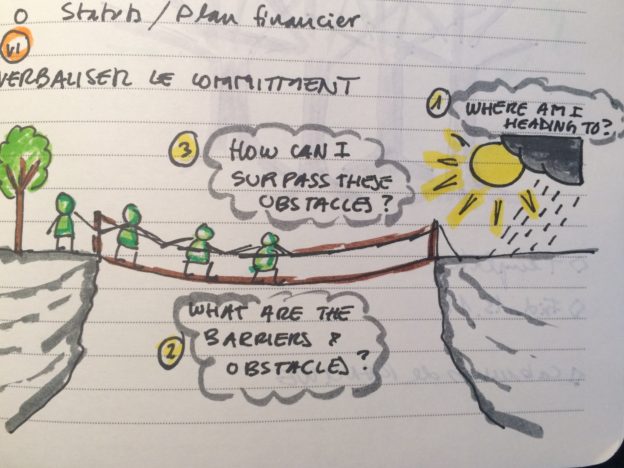 o Statuts / Plan financier
VI
VERBALISER LE COMMITTMENT
1
WHERE AM I
HEADING TO?
3
HOW CAN I
SURPASS THESE
OBSTACLES?
WHAT ARE THE
BARRIERS &
2
OBSTACLES?